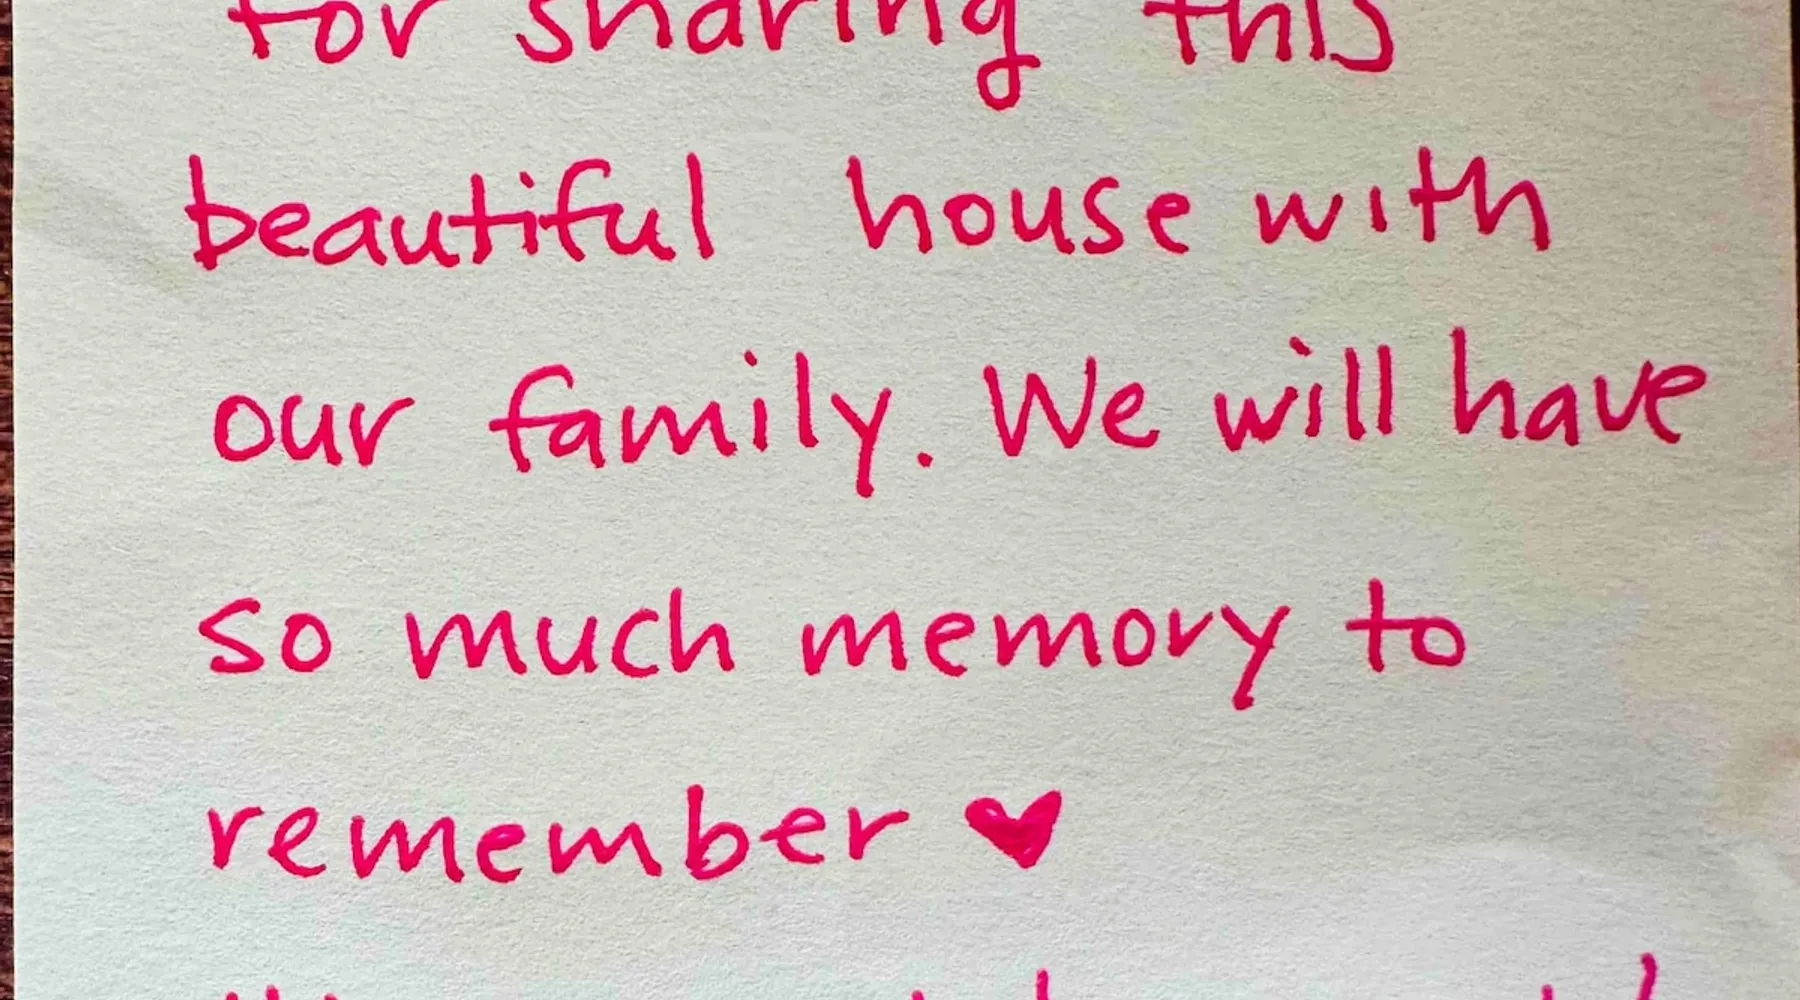 for sharing this
beautiful house with
our family. We will have
so much memory to
remember ♥